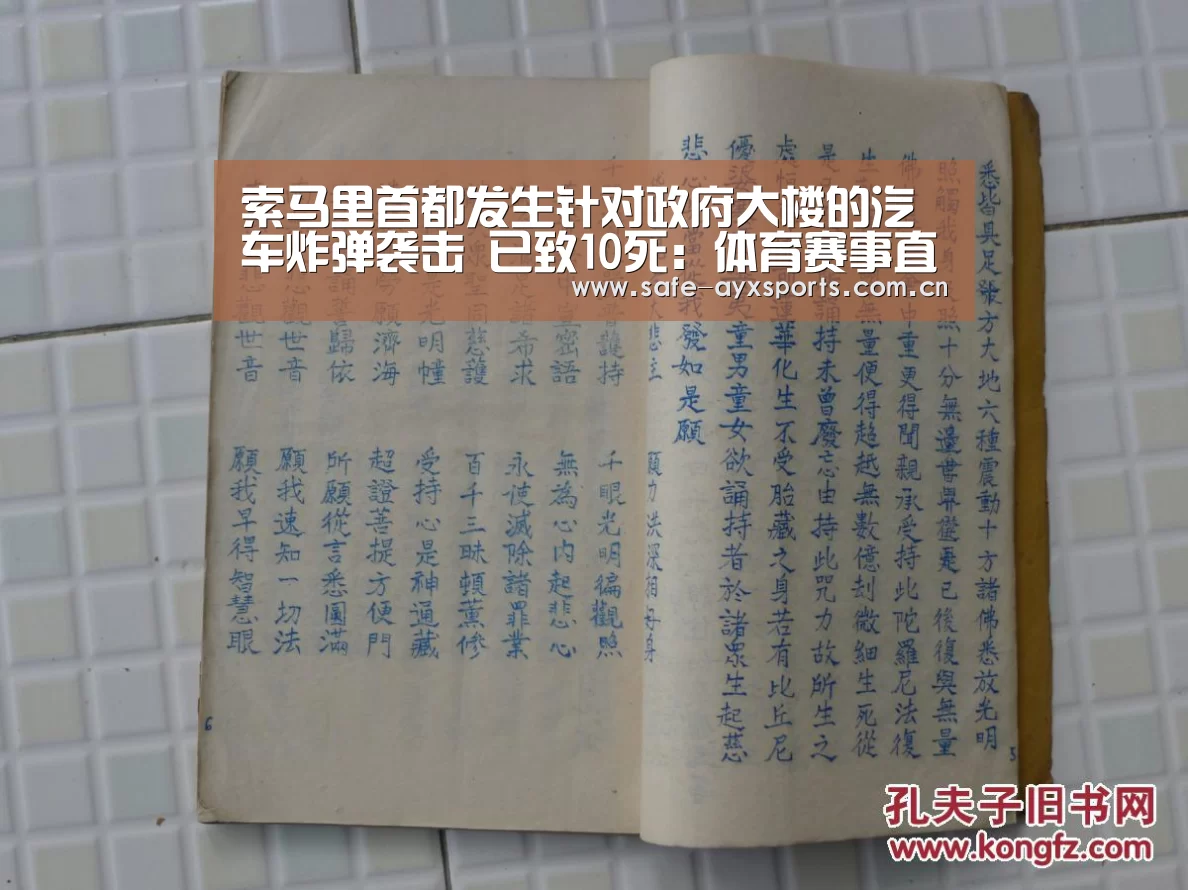 索马里首都发生针对政府大楼的汽
车炸弹袭击 已致10死：体育赛事直
www.safe-ayxsports.com.cn
悉皆具足
方大地六種震動十方諸佛悉放光明
照十分無邊世界
是已後復與無量
中重更得聞親承受持此陀羅尼法復
無量便得超越無數億劫微細生死從
誦持未曾廢忘由持此咒力故所生之
蓮華化生不受胎藏之身若有比丘尼
童男童女欲誦持者於諸眾生起慈
悲心
我發如是願
願力洪深相好身
護持
千眼光明徧觀照
密語
無為心內起悲心
希求
永使滅除諸罪業
同慈護
百千三昧頓薰修
光明幢
受持心是神通藏
願濟海
超證菩提方便門
誦誓歸依
所願從言悉圓滿
悲觀世音
願我速知一切法
悲觀世音
願我早得智慧眼
5
6
孔夫子旧书网
www.kongfz.com